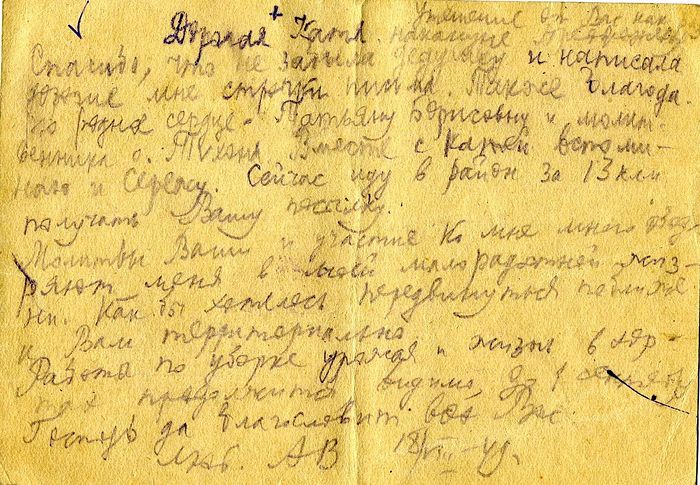 Утешение от Вас как
Дорогая + Катя накануне
Спасибо, что не забыла дедушку и написала
дорогие мне строчки письма. Также благода
рю родное сердце - Татьяну Борисовну и молит-
венника о. Тихона Вместе с Катей вспоми-
наю и Сережу. Сейчас иду в район за 13 клм
получать Вашу посылку.
Молитвы Ваши и участие ко мне много обод-
ряют меня в моей малорадостной жиз-
ни. Как бы хотелось передвинуться поближе
к Вам территориально
Работа по уборке урожая и жизнь в
продолжится видимо до 1 сентября
Господь да благословит всех Вас.
Люб. АВ 18/VIII-49